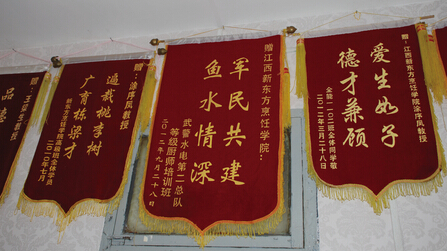 赠：涂序凤教授
遍栽桃李树
广育栋梁才
新东方烹饪学院高级班全体学员
二〇一〇年七月
赠江西新东方烹饪学院：
军民共建
鱼水情深
武警水电第一总队
等级厨师培训班
二〇一二年九月二十八日
赠：江西新东方烹饪学院涂序凤教授
爱生如子
德才兼顾
全能1101班全体同学敬
二〇一二年三月二十八日